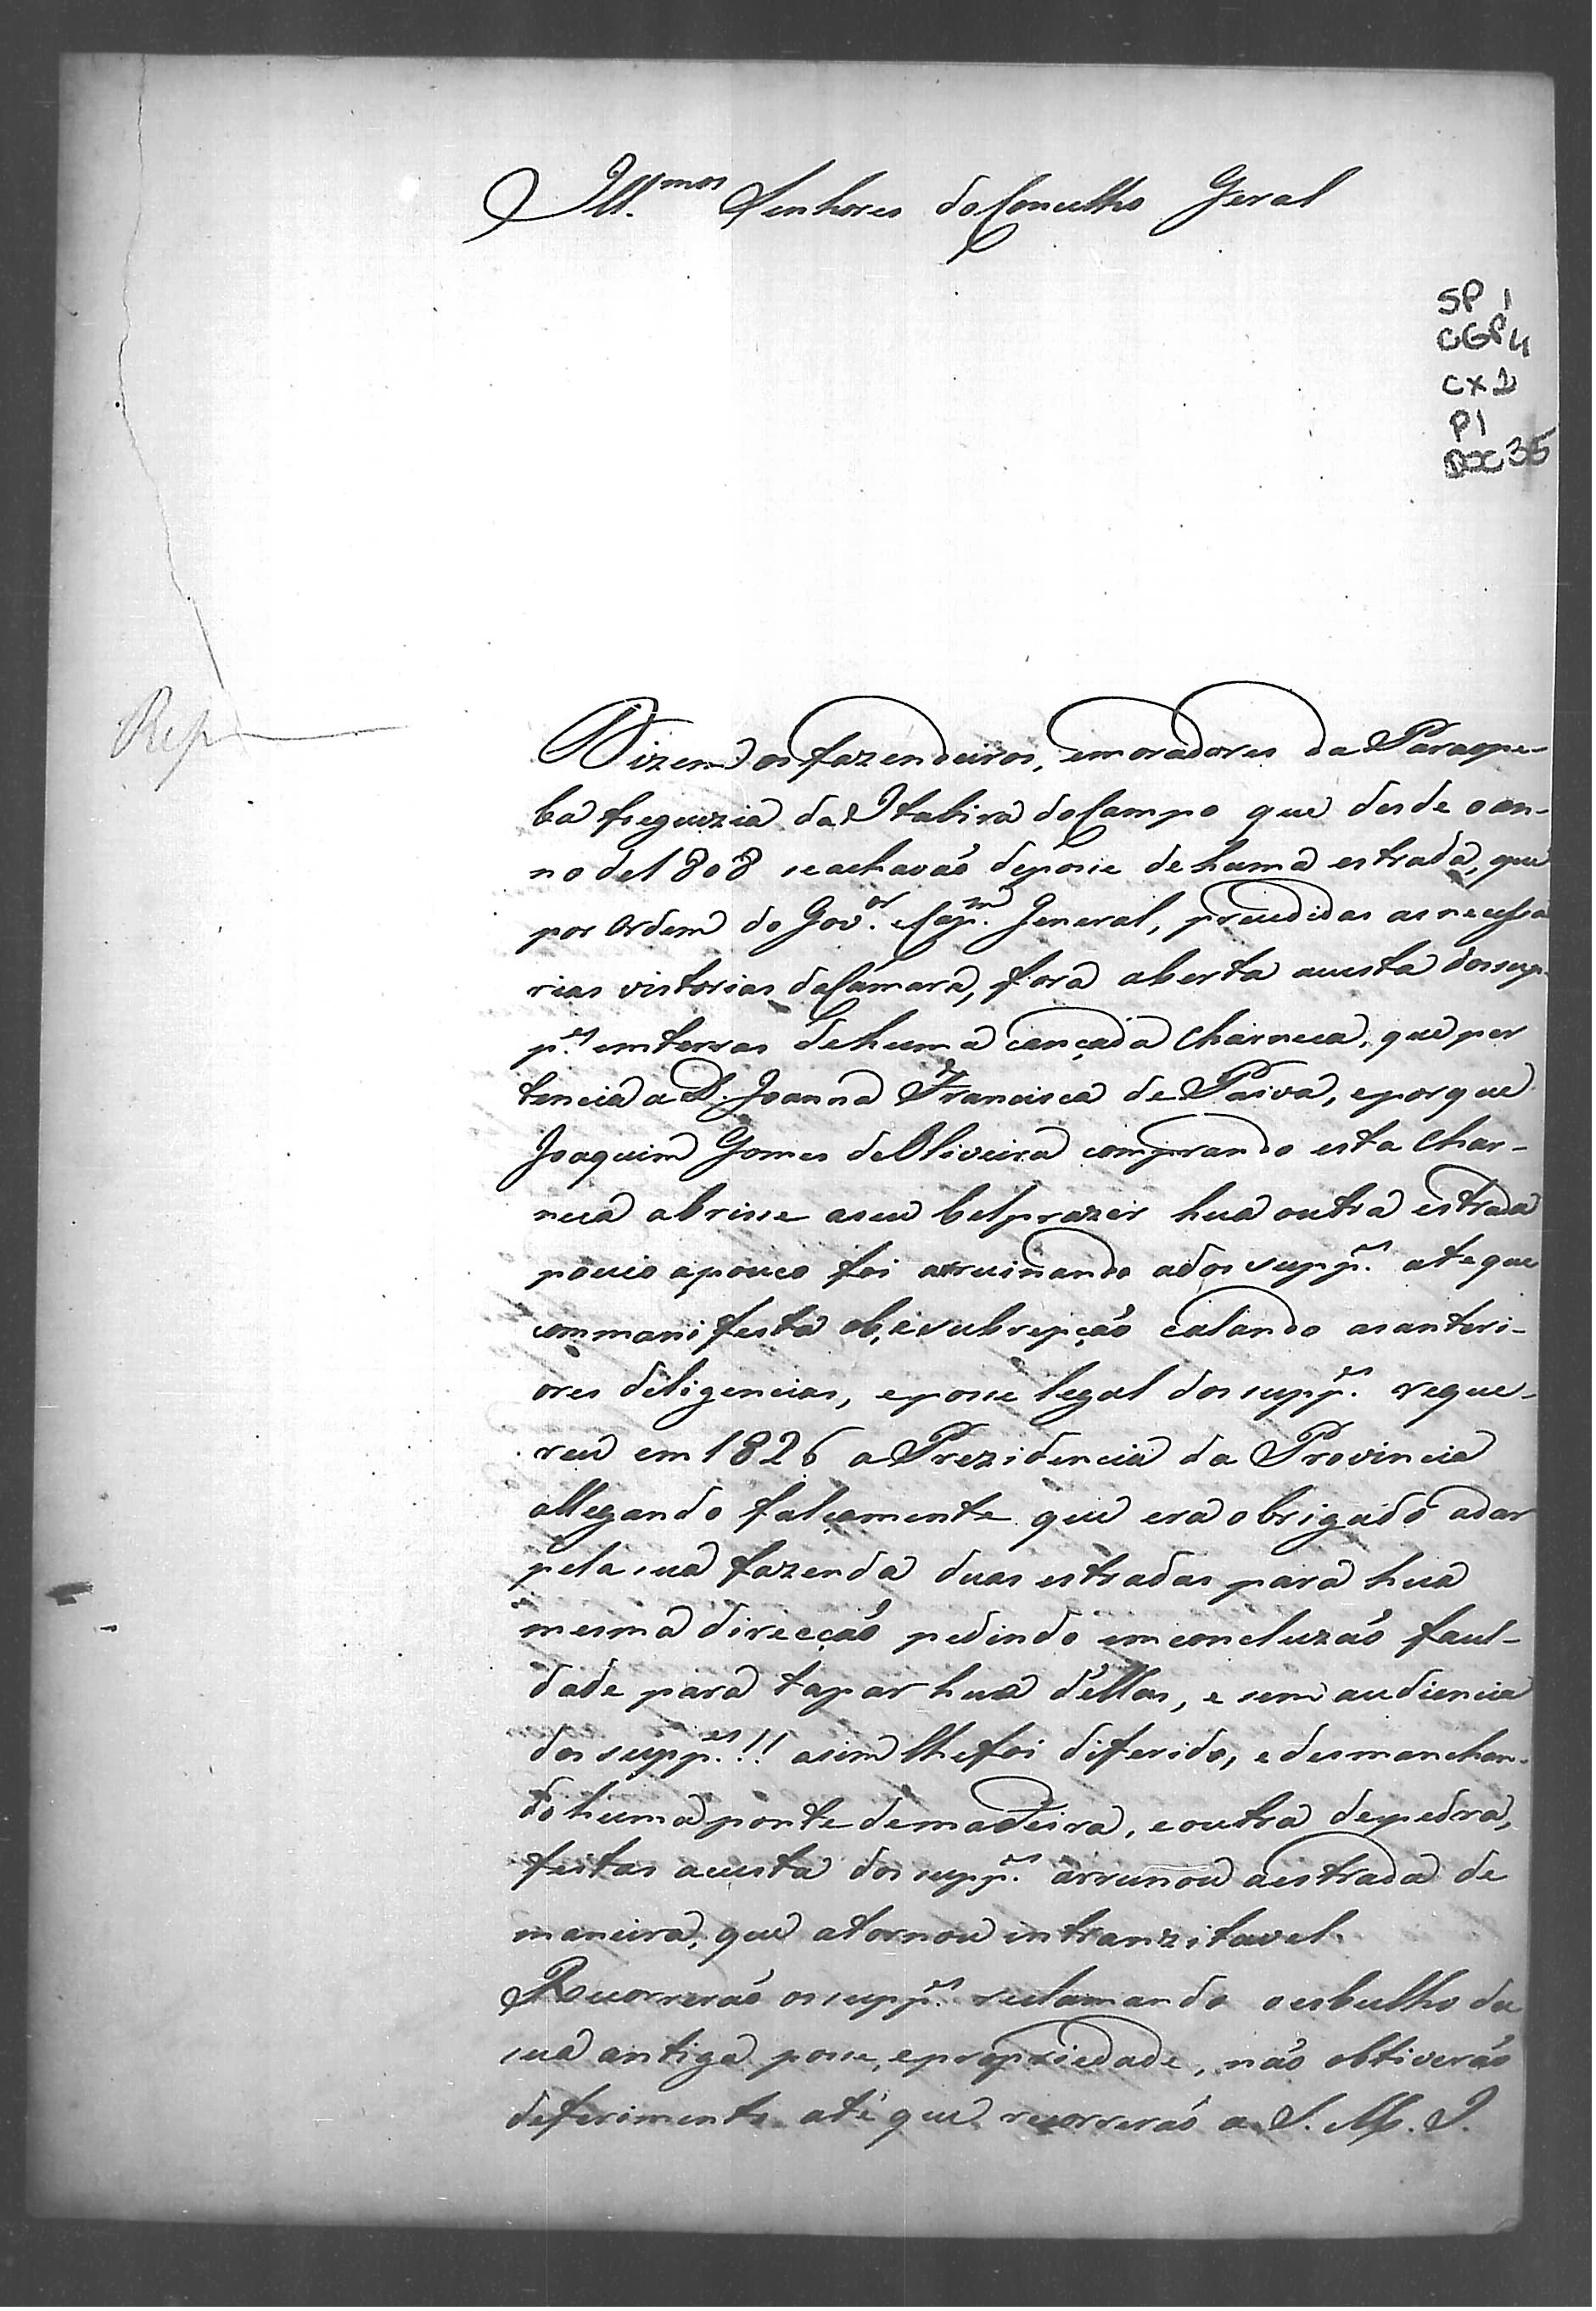 Ill.mos Senhores do Concelho Geral
SP 1
CGP 4
CX 2
P1
DOC 35
Rep
Dizem os fazendeiros, e moradores da Paraope-
ba freguezia da Itabira do Campo que desde o an-
no de 1808 se achavão de posse de huma estrada, que
por Ordem do Gov.or e Cap.m General, precedidas as necessa
rias vistorias da Câmara, fora aberta acusta dos sup-
p.es em terras de huma cançada Charneca, que per
tencia a D. Joanna Francisca de Paiva, e porque
Joaquim Gomes de Oliveira comprando esta Char-
neca abrisse a seu belprazer hua outra estrada
pouco apouco foi arruinando a dos supp.es ate que
com manifesta ob, e subrepção calando as anteri-
ores deligencias, e posse legal dos supp.es reque-
reu em 1826 a Prezidencia da Provincia
allegando falçamente que era obrigado a dar
pela sua fazenda duas estradas para hua
mesma direcção pedindo em concluzão facul-
dade para tapar hua d'ellas, e sem audiencia
dos supp.es!! asim lhe foi diferido, e desmanchan-
do huma ponte de madeira, e outra de pedra,
feitas acusta dos supp.es arruinou a estrada de
maneira, que a tornou intranzitavel.
Recorrerão os supp.es reclamando o esbulho da
sua antiga posse, e propriedade, não obtiverão
deferimento até que recorrerão a S. M. I.